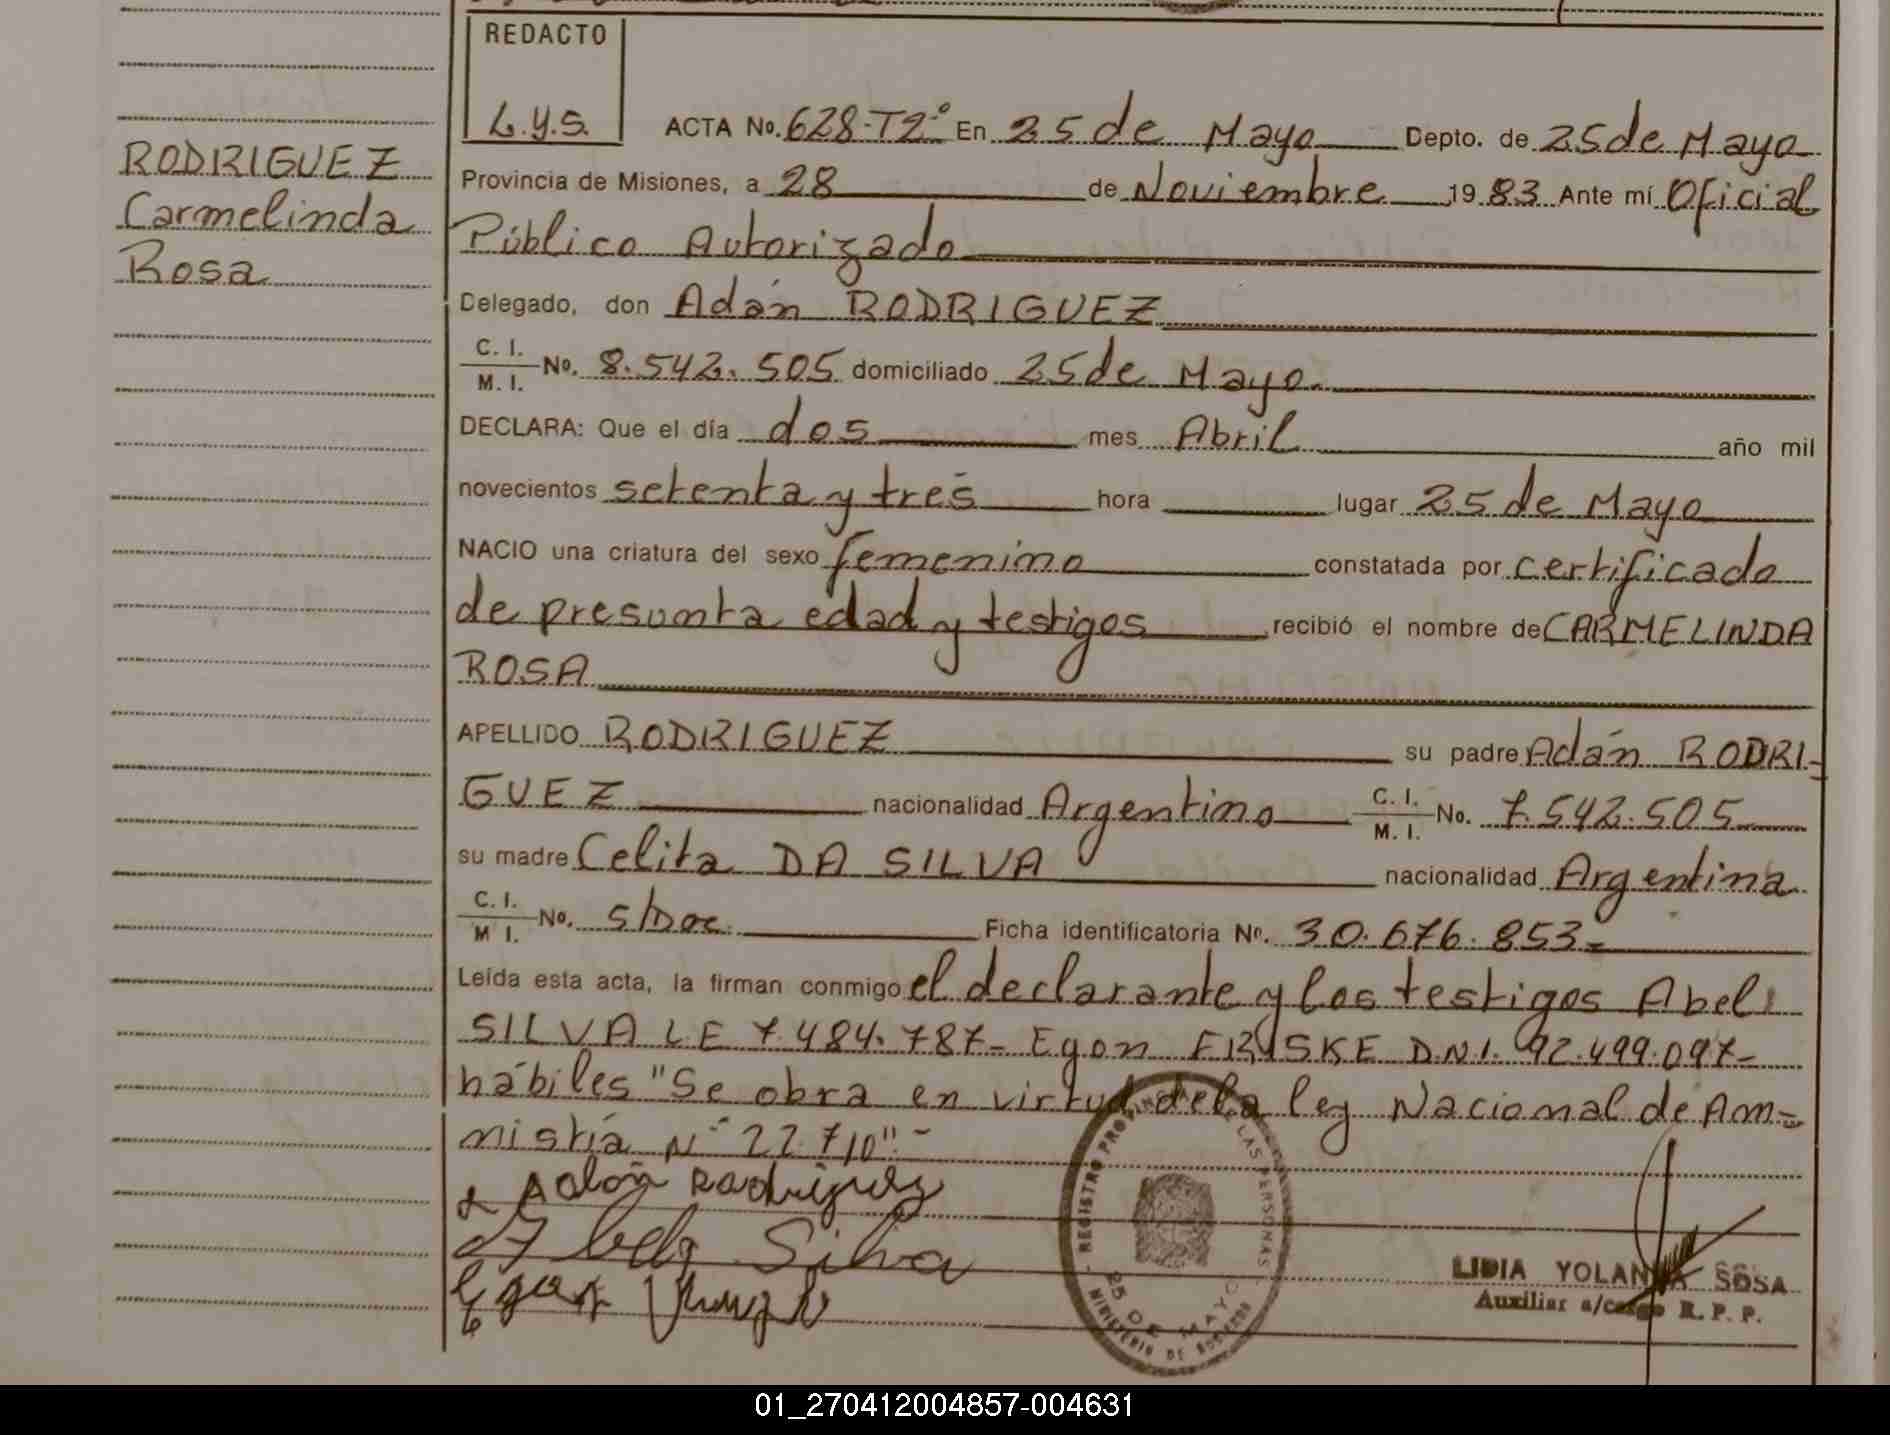 REDACTO
L.y.S.
RODRIGUEZ
Carmelinda
Rosa
ACTA No. 628-T2º En 25 de Mayo Depto. de 25 de Mayo
Provincia de Misiones, a 28 de Noviembre 19 83 Ante mí Oficial
Público Autorizado
Delegado, don Adán RODRIGUEZ
C. I. M. I. No. 8.542.505 domiciliado 25 de Mayo.
DECLARA: Que el día dos mes Abril año mil
novecientos setenta y tres hora lugar 25 de Mayo
NACIO una criatura del sexo femenino constatada por certificado
de presunta edad y testigos recibió el nombre de CARMELINDA
ROSA
APELLIDO RODRIGUEZ su padre Adán RODRI-
GUEZ nacionalidad Argentino C. I. M. I. No. 7.542.505
su madre Celita DA SILVA nacionalidad Argentina
C. I. M I. No. s/Doc. Ficha identificatoria No. 30.676.853-
Leída esta acta, la firman conmigo el declarante y los testigos Abel
SILVA L.E 7.484.787- Egon D.N.I. 92.499.097-
hábiles "Se obra en virtud de la ley Nacional de Am-
nistía Nº 22.710".-
Adán Rodriguez
Silva
REGISTRO PROVINCIAL DE LAS PERSONAS
25 DE MAYO
MINISTERIO DE GOBIERNO
LIDIA YOLANDA SOSA
Auxiliar a/cargo R. P. P.
01_270412004857-004631